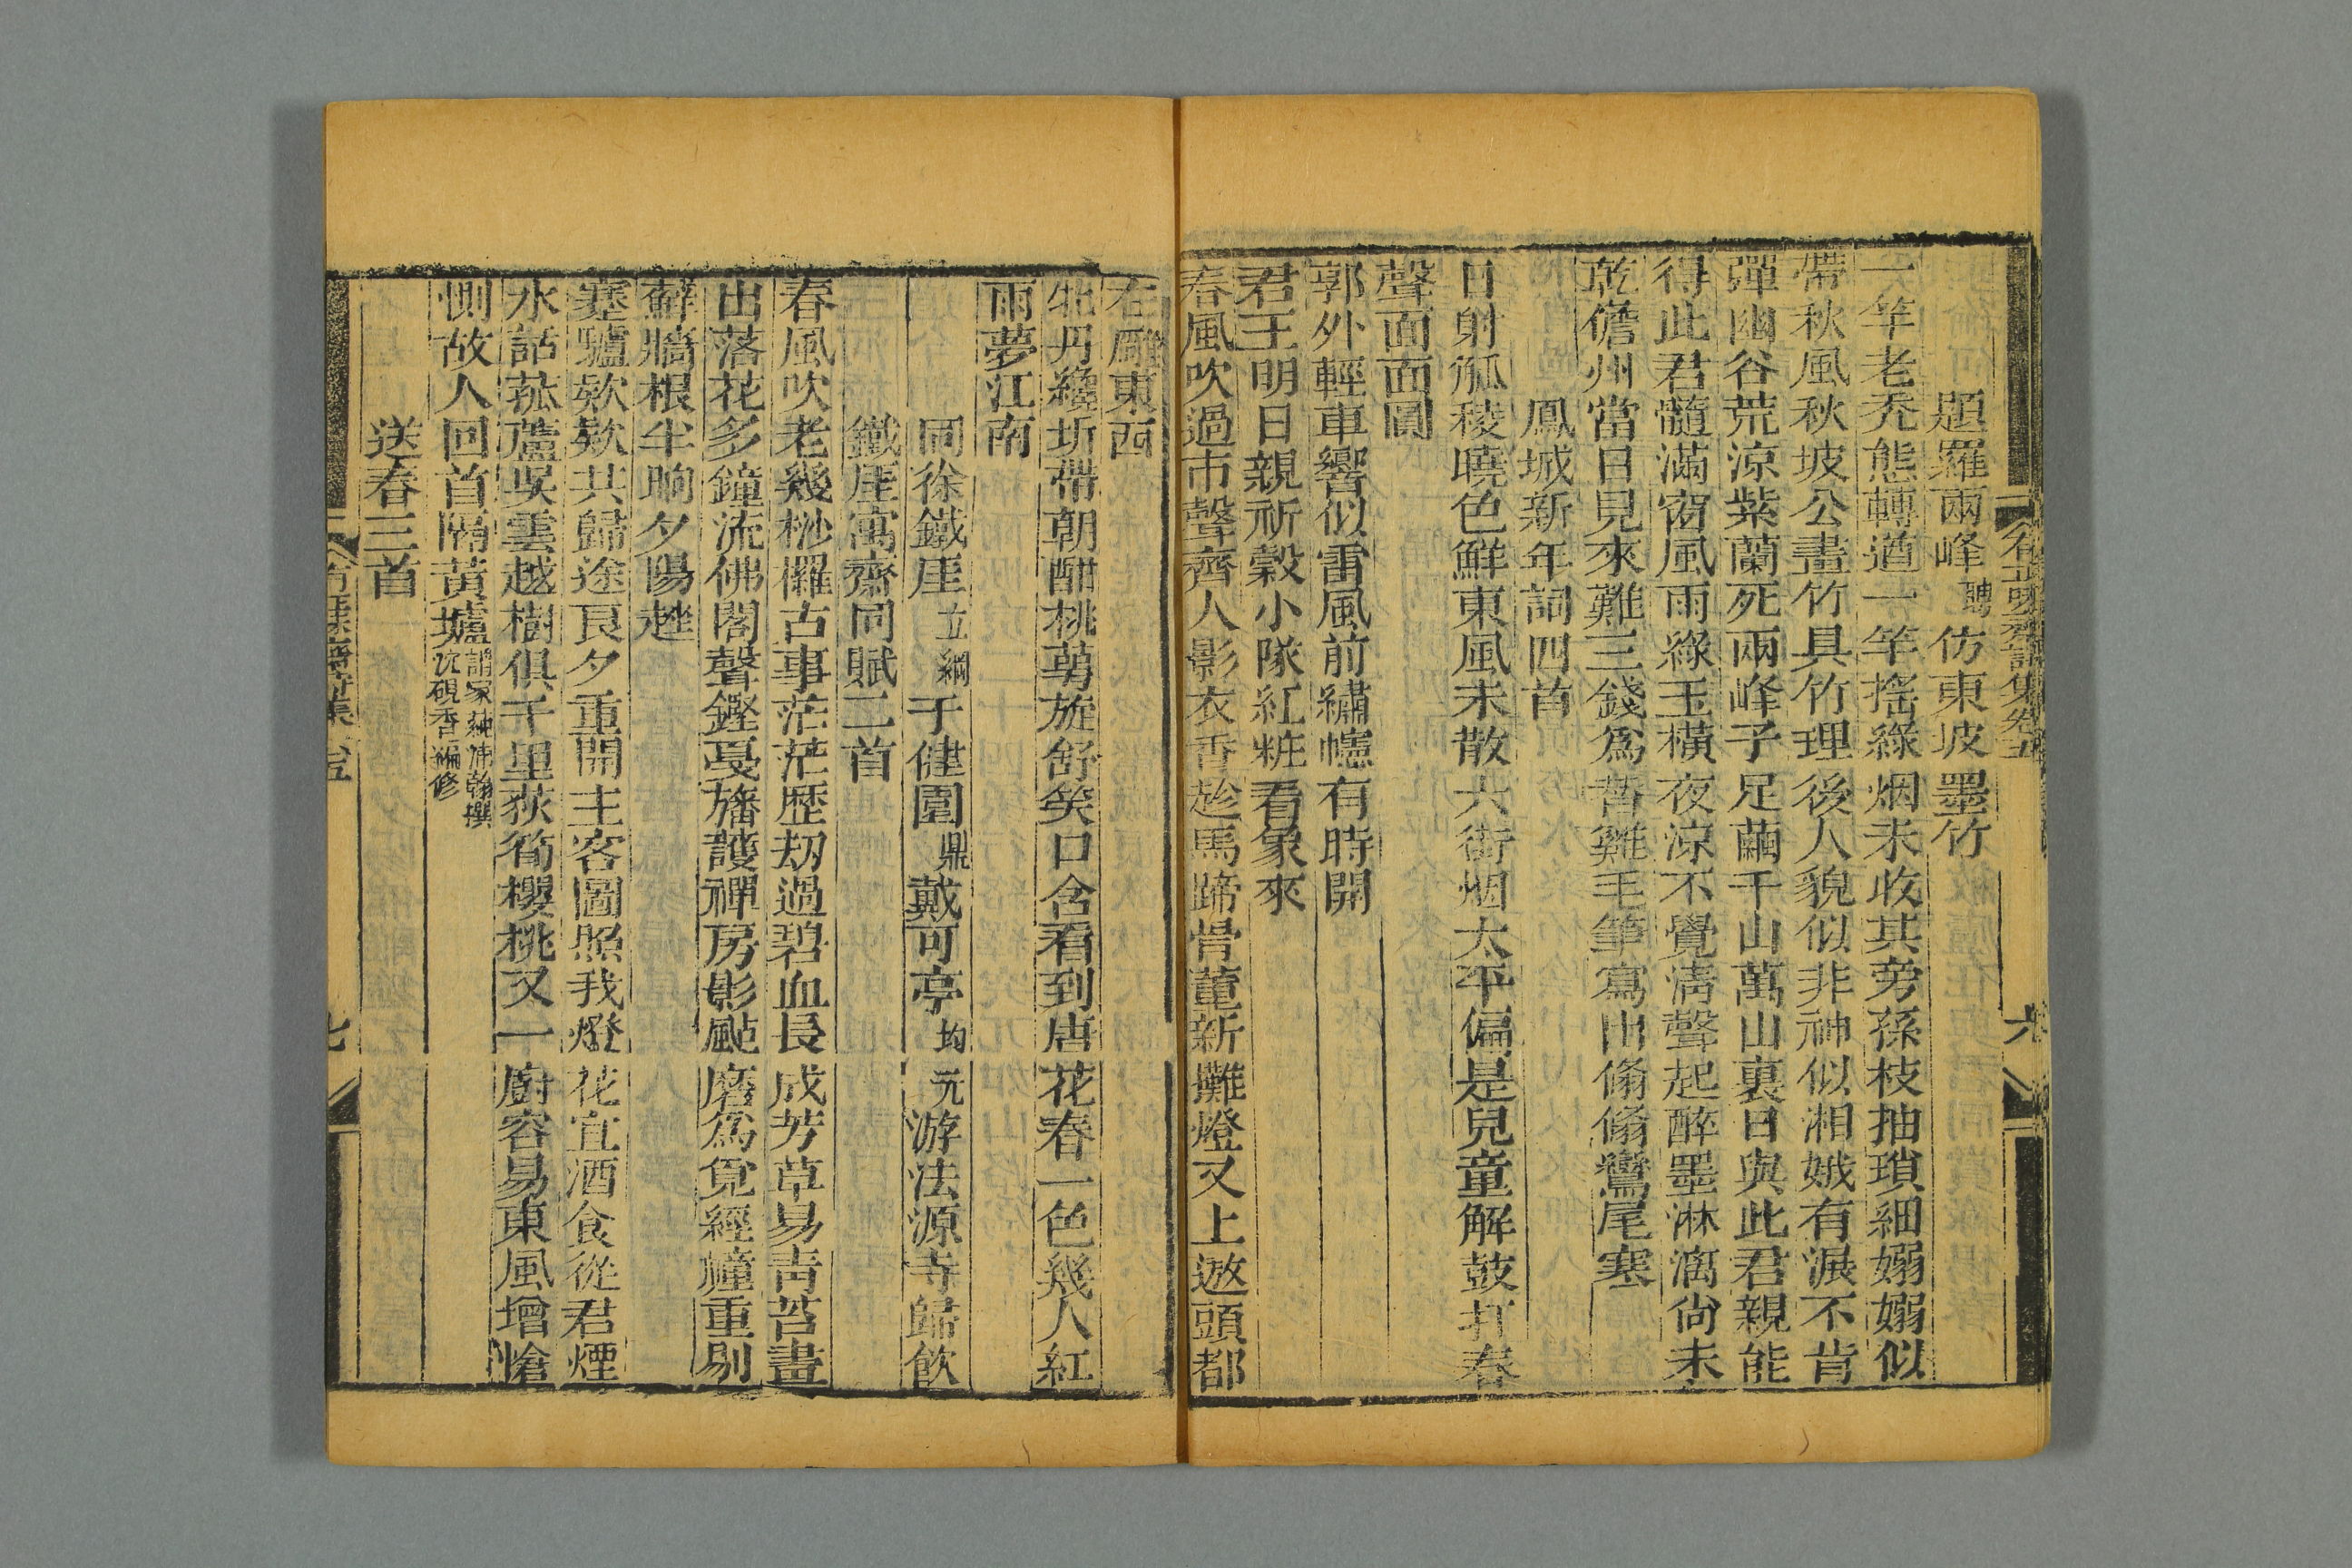 題羅兩峰聘仿東坡墨竹
一竿老禿態轉遒一竿搖綠烟未收其旁孫枝抽瑣細嫋嫋似
帶秋風秋坡公畫竹具竹理後人貌似非神似湘娥有淚不肯
彈幽谷荒涼紫蘭死兩峰子足繭千山萬山裏日與此君親能
得此君髓滿窗風雨綠玉橫夜涼不覺清聲起醉墨淋漓尚未
乾儋州當日見來難三錢爲買雞毛筆寫出翛翛鸞尾寒
鳳城新年詞四首
日射觚稜曉色鮮東風未散六街烟太平偏是兒童解鼓打春
聲面面圓
郭外輕車響似雷風前繡幰有時開
君王明日親祈穀小隊紅粧看象來
春風吹過市聲齊人影衣香趁馬蹄骨董新攤燈又上遨頭都
在廠東西
牡丹纔坼帶朝酣桃萼旋舒笑口含看到唐花春一色幾人紅
雨夢江南
同徐鐵厓立綱于健圃鼎戴可亭均元游法源寺歸飲
鐵厓寓齋同賦二首
春風吹老幾桫欏古事茫茫歷刼過碧血長成芳草易青苔畫
出落花多鐘流佛閣聲鏗戞旛護禪房影颭磨爲覓經幢重剔
蘚牆根半晌夕陽趖
蹇驢欵欵共歸途良夕重開主客圖照我燈花宜酒食從君煙
水話菰蘆吳雲越樹俱千里荻筍櫻桃又一廚容易東風增愴
惻故人回首隔黃壚謂家純沛翰撰沈硯香編修
送春三首
有正味齋詩集卷五
六
七